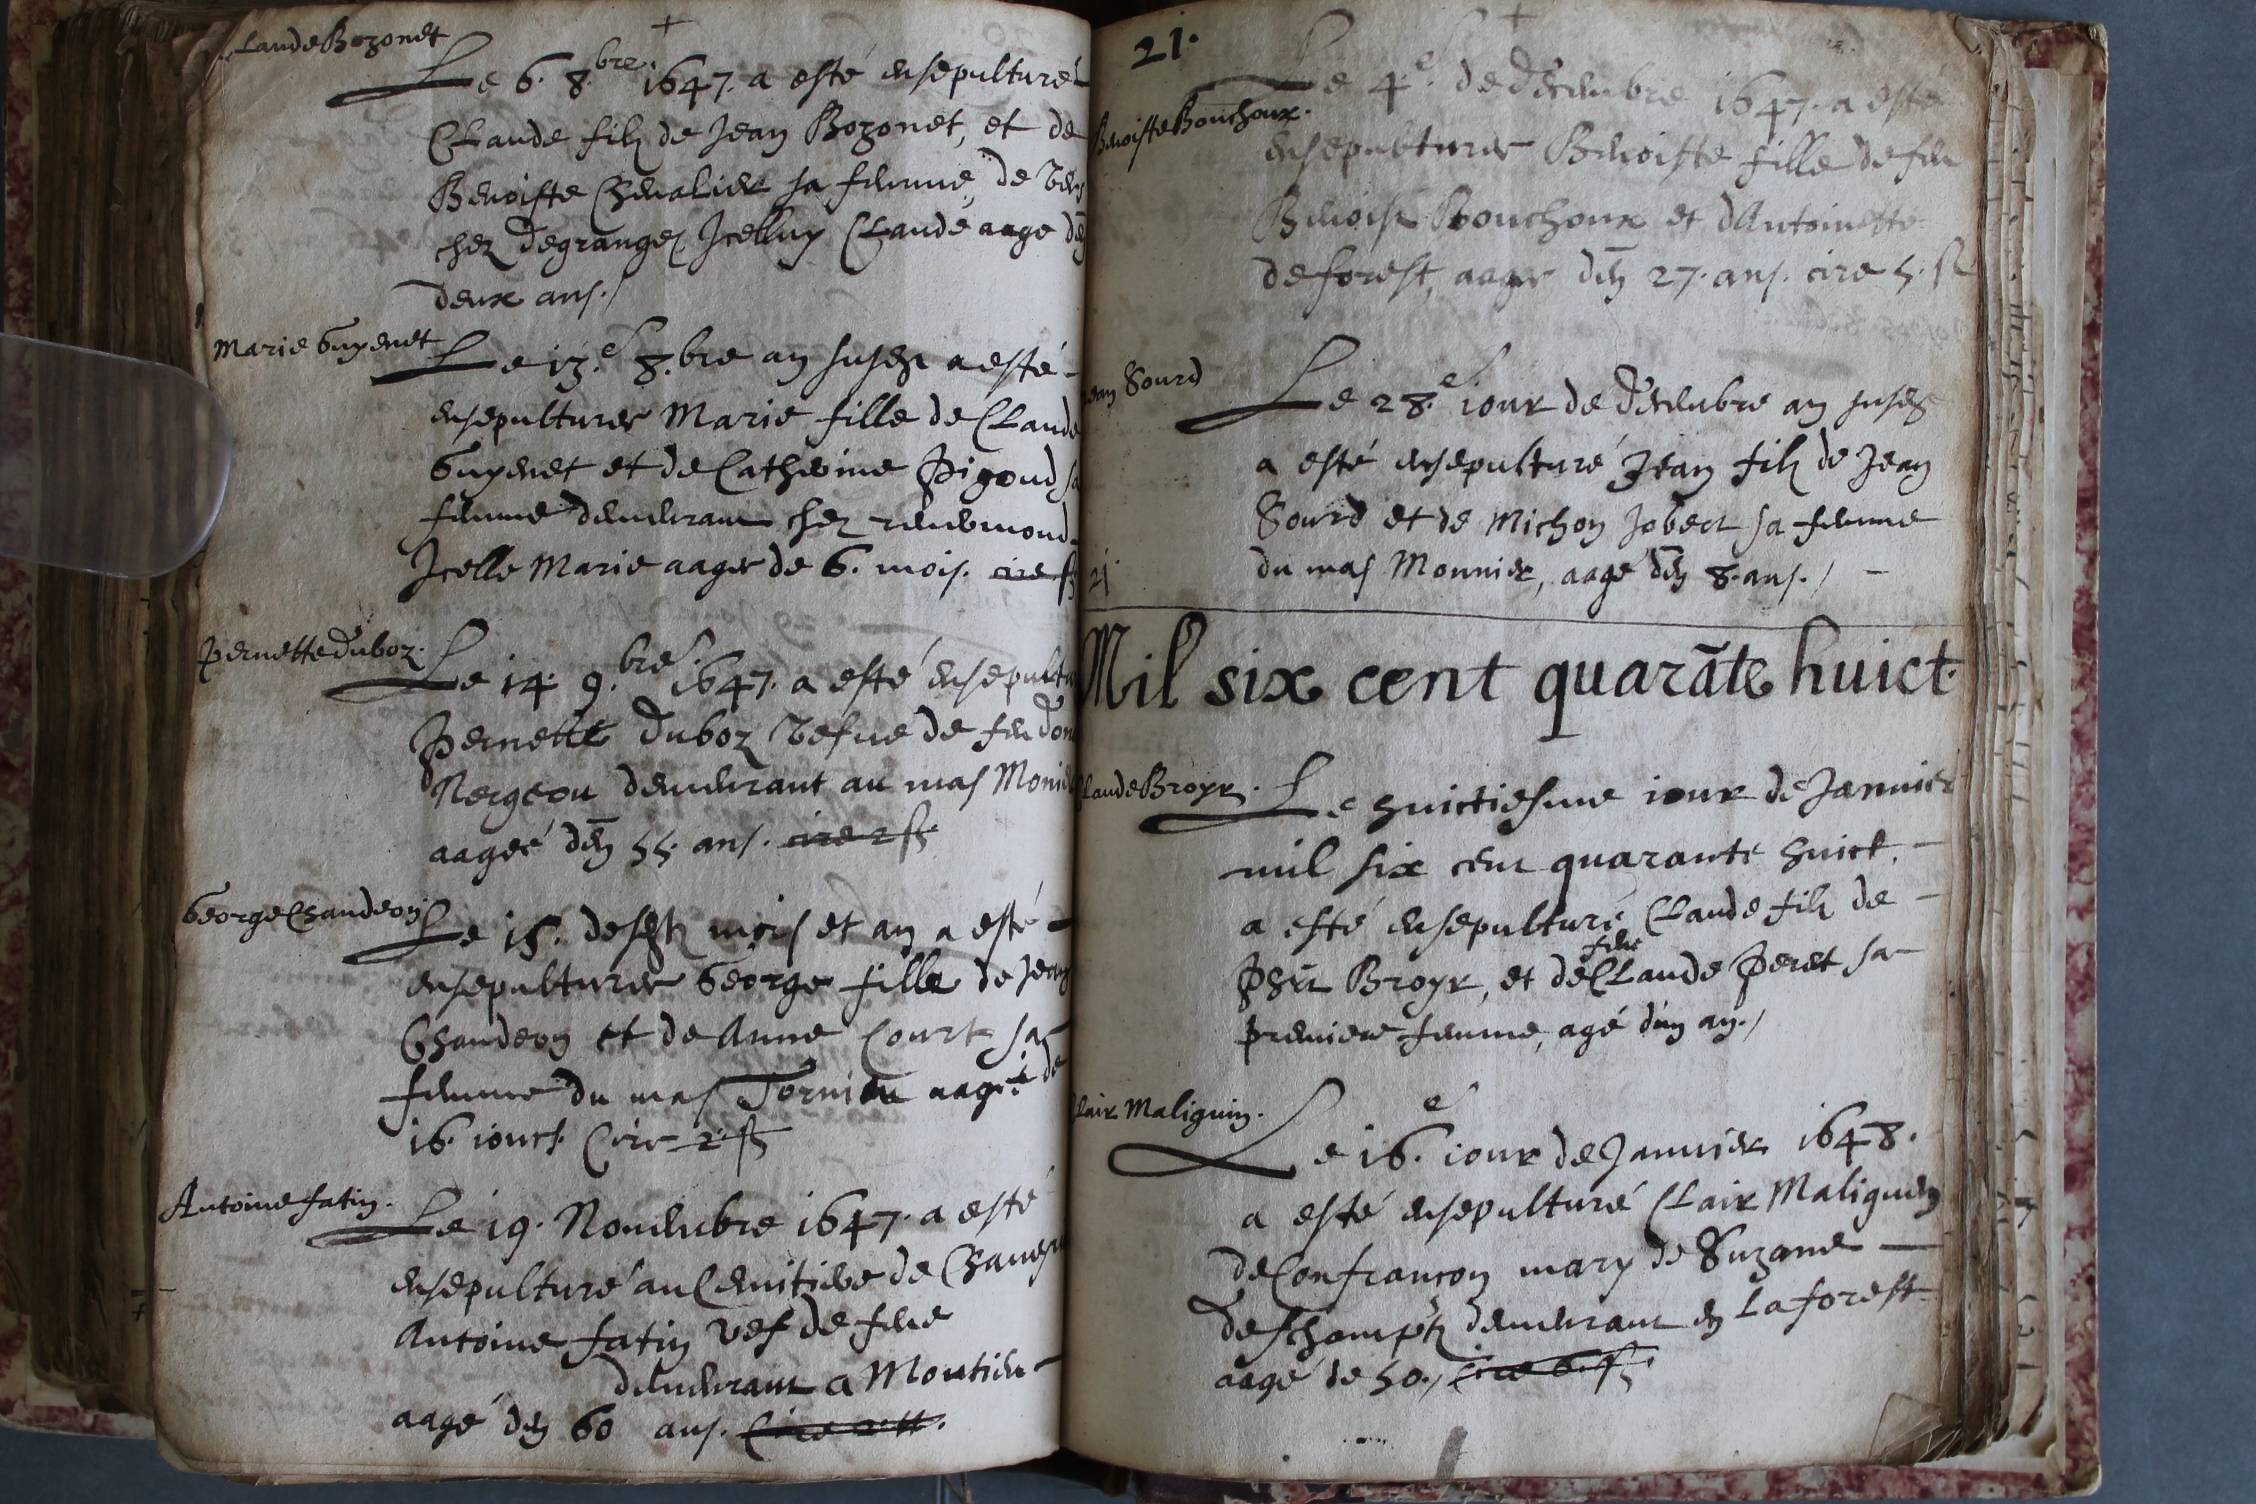 Claude Bozonet
Le 6. 8.bre 1647. a esté ensepulturé
Claude filz de Jean Bozonet, et de
Benoiste Chevalier sa femme, de vers
chez degranges Jcelluy Claude aage den
deux ans./
Marie Guyenet
Le 13.e 8.bre an susd a esté
ensepulturee Marie fille de Claude
Guyenet et de Catherine Pigoud sa
femme demeurant chez
Jcelle Marie aagee de 6. mois. cire
Pernette duboz.
Le 14. 9.bre 1647. a esté ensepultu
Pernette duboz vefue de feu
Nergeou demeurant au mas Monier
aageé den 55. ans. cire 2
George Chandeon
Le 15. desdz mois et an a esté
ensepulturee George fille de Jean
Chandeon et de Anne Court sa
femme du mas Tornieu aageé de
16. iours. Cire 2.
Antoine fatin.
Le 19. Nouembre 1647. a esté
ensepulturé au Cemitiere de
Antoine fatin vef de feue
demeurant a Montieu
aagé den 60 ans. Cire
21.
Benoiste Bouchoux.
Le 4.e de decembre 1647. a esté
ensepulturee Benoiste fille de feu
Benoist Bouchoux et dAntoinette
deforest, aagee den 27. ans. cire 5.
Jean Sourd
Le 28.e iour de decembre an susd
a esté ensepulturé Jean filz de Jean
Sourd et de Michon Jobert sa femme
du mas Monnier, aagé den 8. ans./
21
Mil six cent quarāte huict.
Claude Broyr.
Le huictiesme iour de Januier
mil six cent quarante huict.
a esté ensepulturé Claude filz de
feue
Phīt Broyr, et de Claude Peret sa
premiere femme, agé d'un an./
Clair Maliguin.
Le 16.e iour de Januier 1648.
a esté ensepulturé Clair Maliguin
de Confrançon mary de Suzanne
deschampz demeurant en Laforest
aagé de 50./ cire 6.